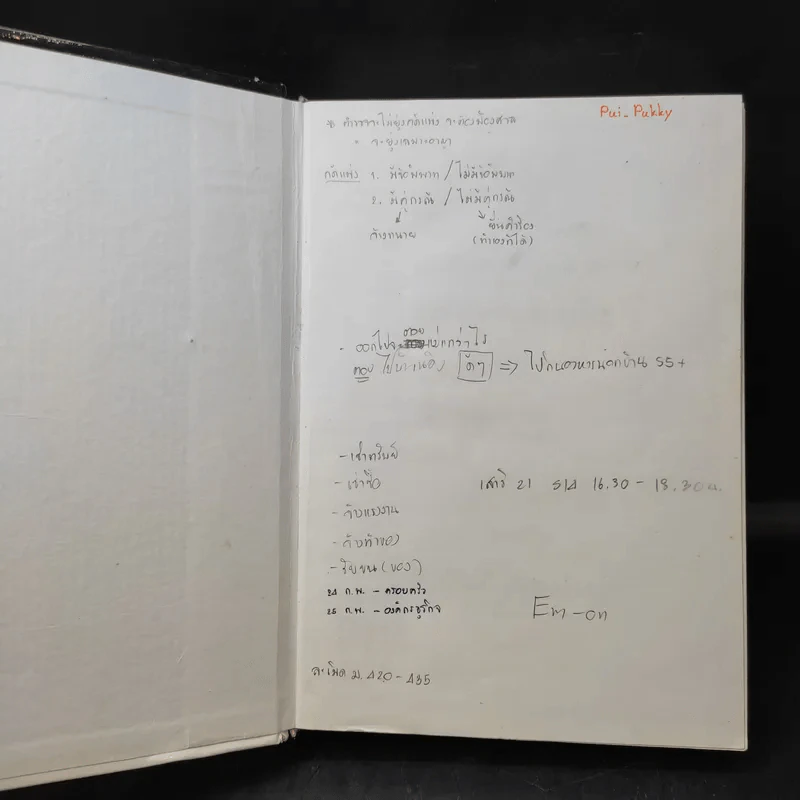 Pui-Pukky
ตำรวจจะไม่ยุ่งคดีแพ่ง จะต้องฟ้องศาล
จะยุ่งเฉพาะอาญา
คดีแพ่ง 1. มีข้อพิพาท / ไม่มีข้อพิพาท
2. มีคู่กรณี / ไม่มีคู่กรณี
จ้างทนาย ยื่นคำร้อง
(ทำเองก็ได้)
- ออกไปจะตอบแก่กว่าไร
ตอบ ⇒ ไปกินอาหารนอกบ้าน 55+
- เช่าทรัพย์
- เช่าซื้อ
เสาร์ 21 เวลา 16.30 - 18.30 น.
- จ้างแรงงาน
- จ้างทำของ
- รับขน (ของ)
24 ก.พ. - ครอบครัว
25 ก.พ. - องค์กรธุรกิจ
Em-on
ละเมิด ม. 420 - 435